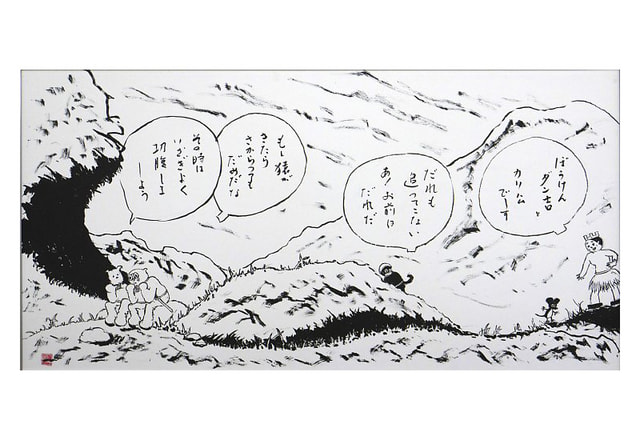 ぼうけん
ダン吉と
カリム
でーす
だれも
追ってこない
あ!お前は
だれだ
もし猿が
きたら
さからっても
だめだな
その時は
いさぎよく
切腹しま
しょう